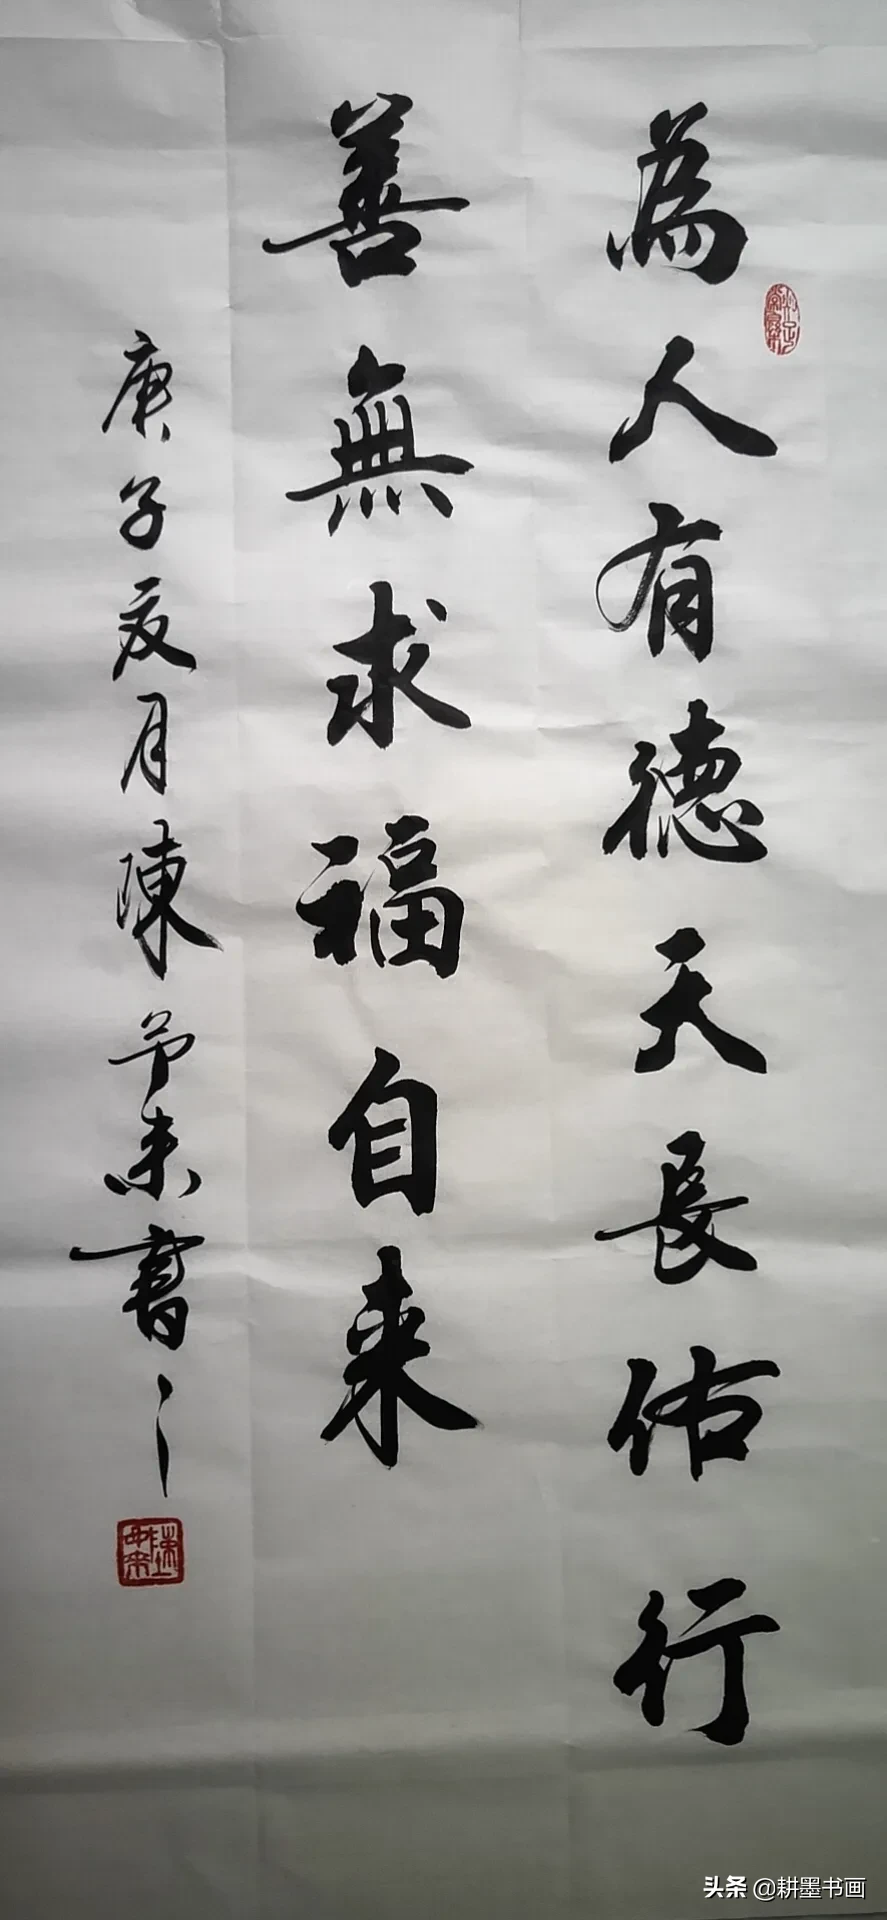 為人有德天長佑行
善無求福自来
庚子夏月陳予来書之
头条 @耕墨书画